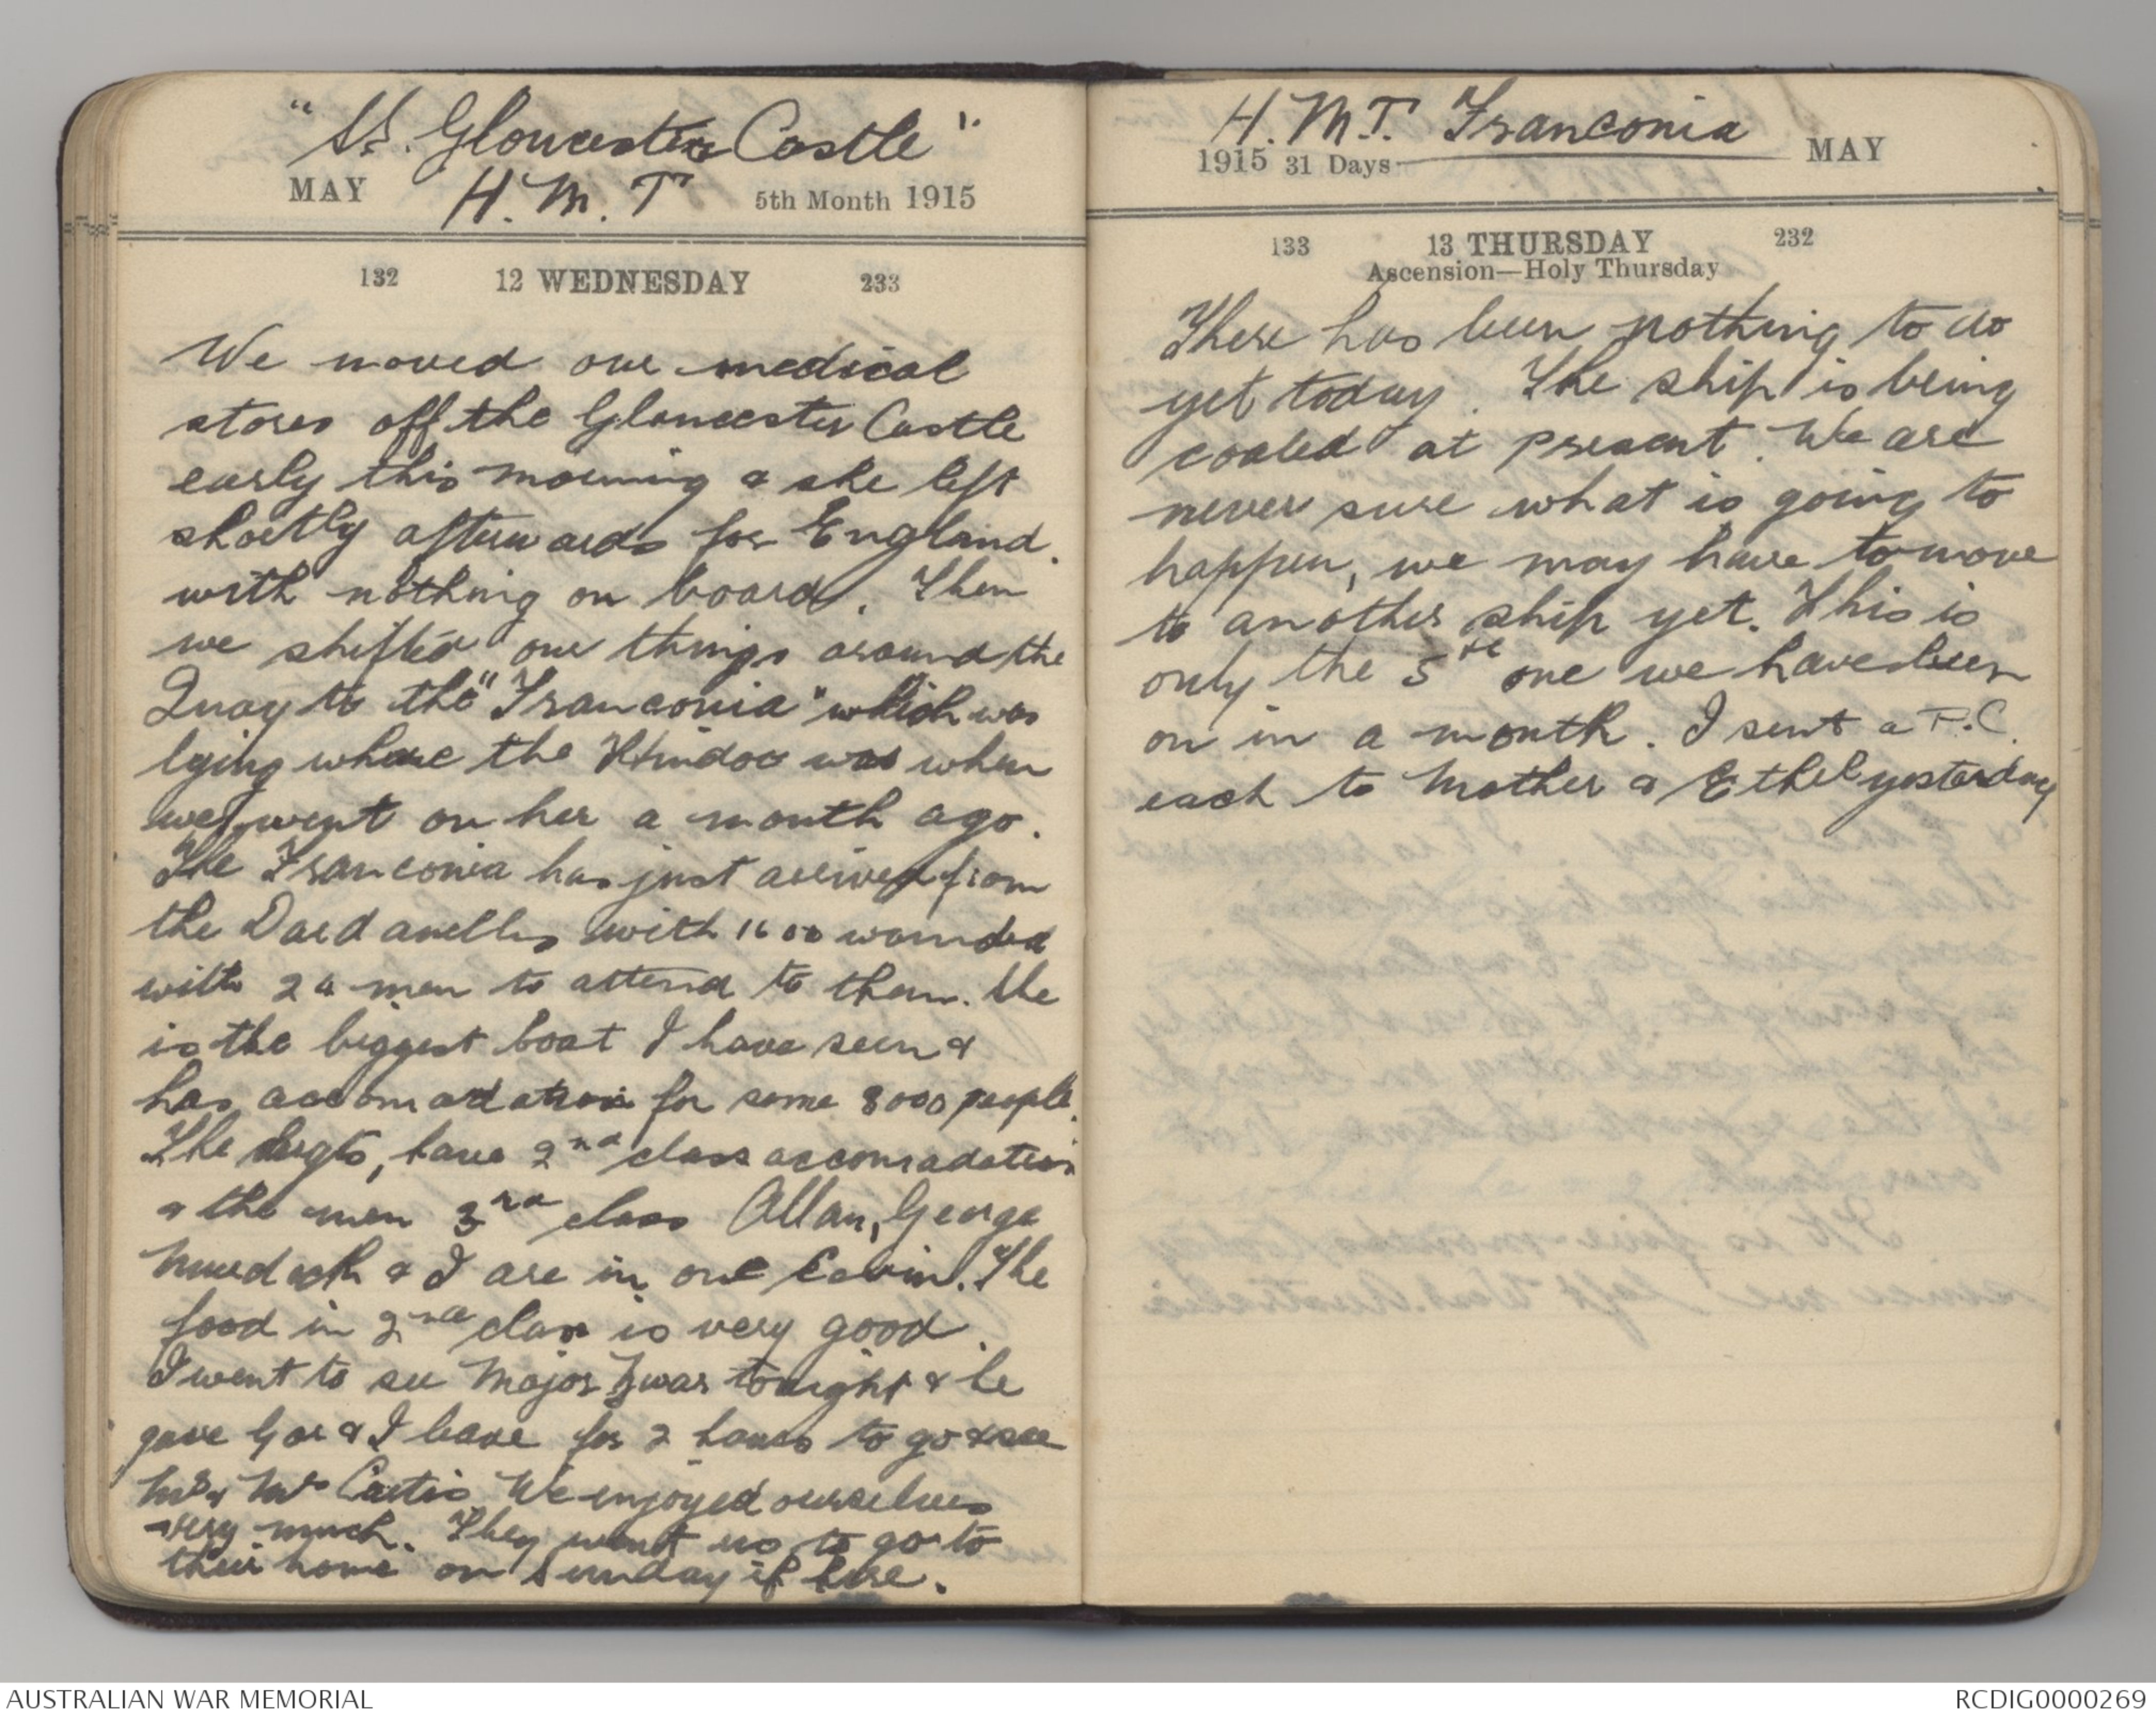 "SS. Gloucester Castle"
MAY H.M.T 5th Month 1915
132 12 WEDNESDAY 233
We moved our medical
stores off the Gloucester Castle
early this morning & she left
shortly afterwards for England.
with nothing on board. Then
we shifted our things around the
Quay to the "Franconia" which was
lying where the Hindoo was when
we went on her a month ago.
The Franconia has just arrived from
the Dardanelles with 1600 wounded
with 24 men to attend to them. She
is the biggest boat I have seen &
has accomadation for some 3000 people.
The Sergts, have 2nd class accomadation
& the men 3rd class Allan, George
Murdoch & I are in one Cavin. The
food in 2nd class is very good.
I went to see Major tonight & he
gave Geo & I leave for 2 hours to go & see
Mr & Mrs Curtis. We enjoyed ourselves
very much. They want us to go to
their home on Sunday if here.
H.M.T. Franconia
1915 31 Days MAY
133 13 THURSDAY 232
Ascension—Holy Thursday
There has been nothing to do
yet today. The ship is being
coaled at present. We are
never sure what is going to
happen, we may have to move
to another ship yet. This is
only the 5th one we have been
on in a month. I sent a P.C.
each to Mother & Ethel yesterday
AUSTRALIAN WAR MEMORIAL
RCDIG0000269